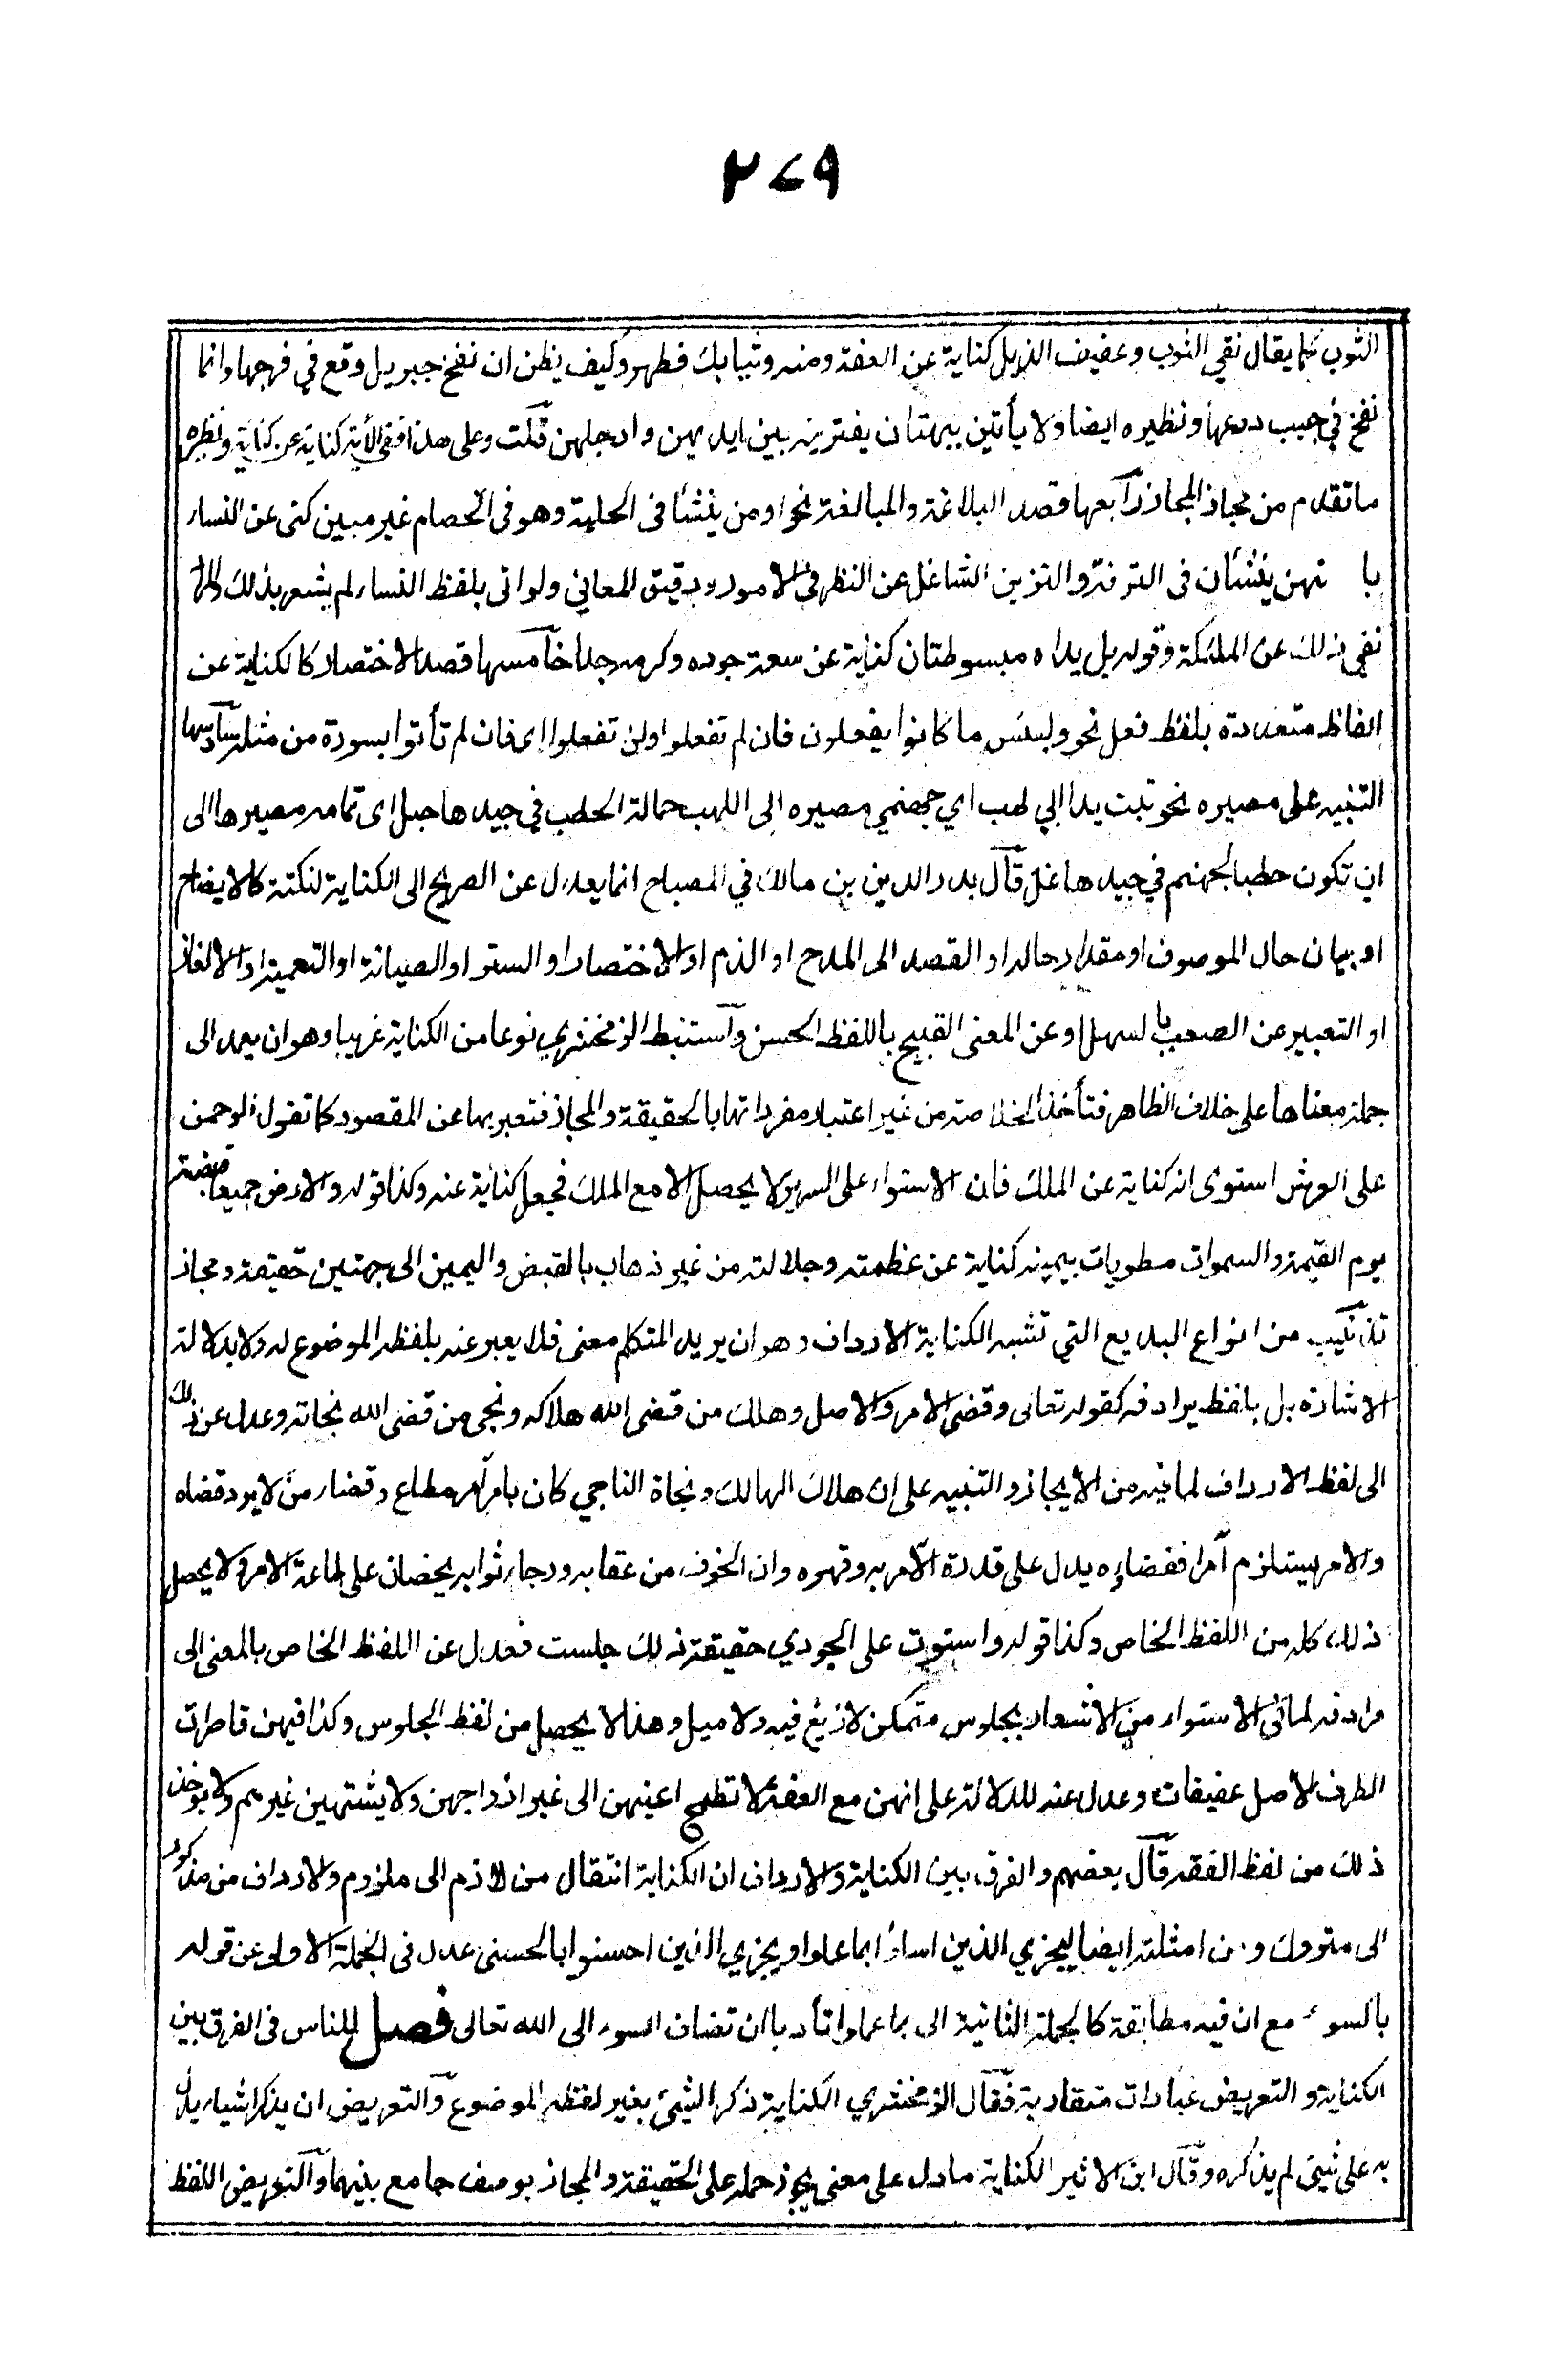 ٢٧٩
الثوب كما يقال نقي الثوب وعفيف الذيل كناية عن العفة ومنه وثيابك فطهر وكيف يظن ان نفخ جبريل وقع في فرجها وانما
نفخ في جيب درعها ونظيره ايضا ولا يأتين ببهتان يفترينه بين ايديهن وارجلهن قلت وعلى هذا ففي الآية كناية عن كناية ونظيره
ماتقدم من مجاز المجاز رابعها قصد البلاغة والمبالغة نحو اومن ينشأ في الحلية وهو في الخصام غير مبين كنى عن النساء
با نهن ينشأن في الترفه والتزين الشاغل عن النظر في الامور ودقيق المعاني ولو اتى بلفظ النساء لم يشعر بذلك والمراد
نفي ذلك عن الملئكة وقوله بل يداه مبسوطتان كناية عن سعة جوده وكرمه جدا خامسها قصد الاختصار كالكناية عن
الفاظ متعددة بلفظ فعل نحو ولبئس ما كانوا يفعلون فان لم تفعلوا ولن تفعلوا اى فان لم تأتوا بسورة من مثله سادسها
التنبيه على مصيره نحو تبت يدا ابي لهب اي جهنمي مصيره الى اللهب حمالة الحطب في جيدها حبل اى تمامه مصيرها الى
ان تكون حطبا لجهنم في جيدها غل قال بدر الدين بن مالك في المصباح انما يعدل عن الصريح الى الكناية لنكتة كالايضاح
او بيان حال الموصوف او مقدار حاله او القصد الى المدح او الذم او الاختصار او الستر او الصيانة او التعمية او الالغاز
او التعبير عن الصعب با لسهل او عن المعنى القبيح باللفظ الحسن واستنبط الزمخشري نوعا من الكناية غريبا وهو ان يعمد الى
جملة معناها على خلاف الظاهر فتأخذ الخلاصة من غير اعتبار مفرداتها بالحقيقة والمجاز فتعبر بها عن المقصود كما تقول الرحمن
على العرش استوى انه كناية عن الملك فان الاستواء على السرير لا يحصل الا مع الملك فجعل كناية عنه وكذا قوله والارض جميعا قبضته
يوم القيمة والسموات مطويات بيمينه كناية عن عظمته وجلالته من غير ذهاب بالقبض واليمين الى جهتين حقيقة ومجاز
تذنيب من انواع البديع التي تشبه الكناية الارداف وهو ان يريد المتكلم معنى فلا يعبر عنه بلفظه الموضوع له ولا بدلالة
الاشارة بل بلفظ يرادفه كقوله تعالى وقضى الامر والاصل وهلك من قضى الله هلاكه ونجى من قضى الله نجاته وعدل عن ذلك
الى لفظ الارداف لما فيه من الايجاز والتنبيه على ان هلاك الهالك ونجاة الناجي كان بامر آمر مطاع وقضاء من لا يرد قضاه
والامر يستلزم آمرا فقضاءه يدل على قدرة الآمر به وقهره وان الخوف من عقابه ورجاء ثوابه يحضان على طاعة الامر ولا يحصل
ذلك كله من اللفظ الخاص وكذا قوله واستوت على الجودي حقيقة ذلك جلست فعدل عن اللفظ الخاص بالمعنى الى
مرادفه لما في الاستواء من الاشعار بجلوس متمكن لا زيغ فيه ولا ميل وهذا لا يحصل من لفظ الجلوس وكذا فيهن قاصرات
الطرف الاصل عفيفات وعدل عنه للدلالة على انهن مع العفة لا تطمح اعينهن الى غير ازواجهن ولا يشتهين غيرهم ولا يوخذ
ذلك من لفظ العفة قال بعضهم والفرق بين الكناية والارداف ان الكناية انتقال من لازم الى ملزوم والارداف من مذكور
الى متروك ومن امثلته ايضا ليجزي الذين اساؤا بما عملوا ويجزي الذين احسنوا بالحسنى عدل في الجملة الاولى عن قوله
بالسوء مع ان فيه مطابقة كالجملة الثانية الى بما عملوا تأدبا ان تضاف السوء الى الله تعالى فصل للناس في الفرق بين
الكناية والتعريض عبارات متقاربة فقال الزمخشري الكناية ذكر الشيئ بغير لفظه الموضوع والتعريض ان يذكر شياء يدل
به على شيئ لم يذكره وقال ابن الاثير الكناية مادل على معنى يجوز حمله على الحقيقة والمجاز بوصف جامع بينهما والتعريض اللفظ